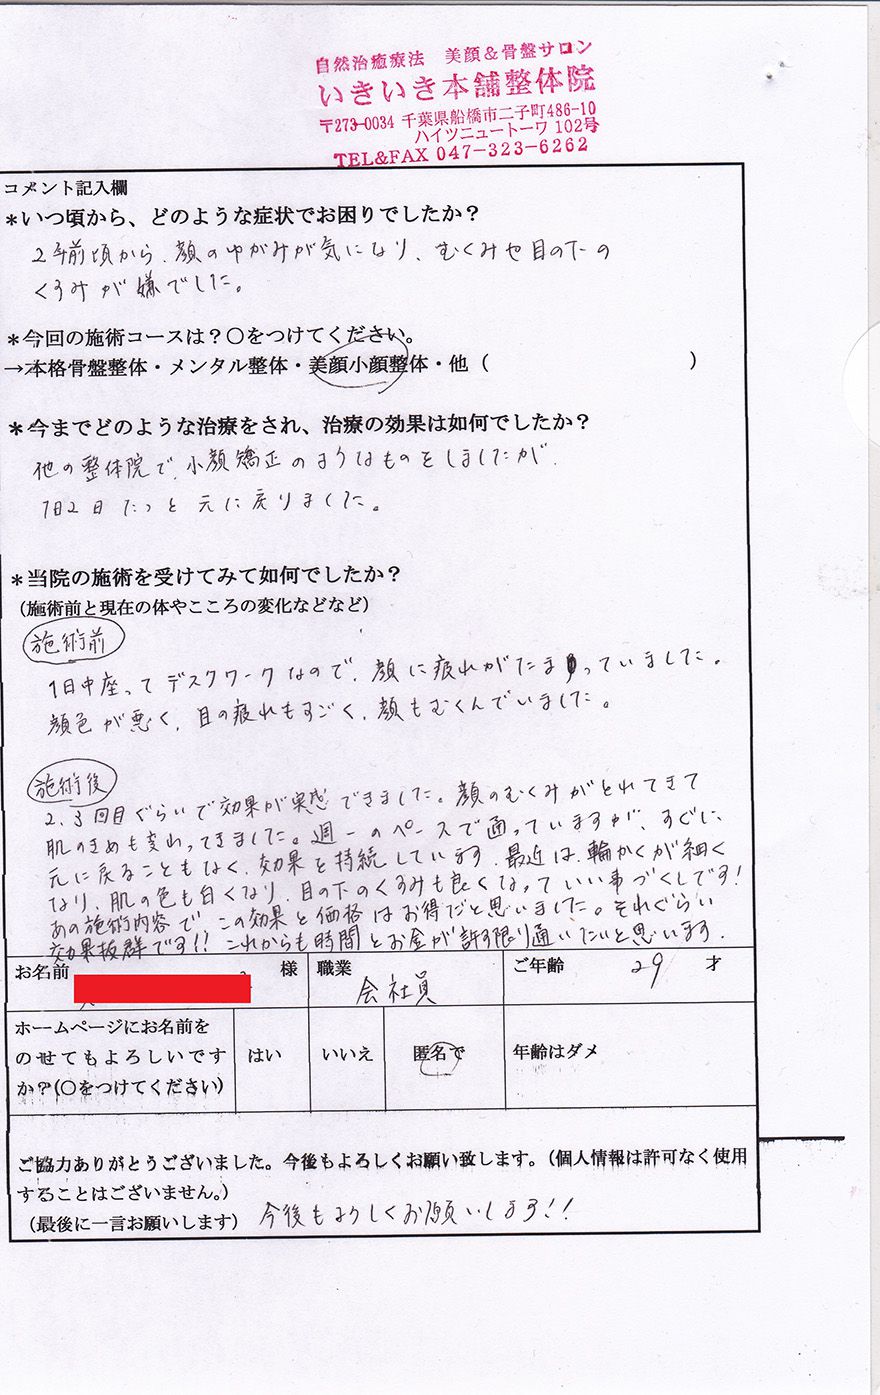 自然治癒療法 美顔&骨盤サロン
いきいき本舗整体院
〒273-0034 千葉県船橋市二子町486-10
ハイツニュートーワ 102号
TEL&FAX 047-323-6262
コメント記入欄
*いつ頃から、どのような症状でお困りでしたか?
2年前頃から、顔のゆがみが気になり、むくみや目の下の
くすみが嫌でした。
*今回の施術コースは?○をつけてください。
→本格骨盤整体・メンタル整体・美顔小顔整体・他( )
*今までどのような治療をされ、治療の効果は如何でしたか?
他の整体院で、小顔矯正のようなものをしましたが、
1日2日たつと元に戻りました。
*当院の施術を受けてみて如何でしたか?
(施術前と現在の体やこころの変化などなど)
施術前
1日中座ってデスクワークなので、顔に疲れがたまっていました。
顔色が悪く、目の疲れもすごく、顔もむくんでいました。
施術後
2、3回目ぐらいで効果が実感できました。顔のむくみがとれてきて
肌のきめも変わってきました。週一のペースで通っていますが、すぐに
元に戻ることもなく、効果を持続しています。最近は、輪かくが細く
なり、肌の色も白くなり、目の下のくすみも良くなっていい事づくしです!
あの施術内容で、この効果と価格はお得だと思いました。それぐらい
効果抜群です!! これからも時間とお金が許す限り通いたいと思います.
お名前 様 職業 会社員 ご年齢 29 才
ホームページにお名前を
のせてもよろしいです
か?(○をつけてください) はい いいえ 匿名で 年齢はダメ
ご協力ありがとうございました。今後もよろしくお願い致します。(個人情報は許可なく使用
することはございません。)
(最後に一言お願いします) 今後もよろしくお願いします!!